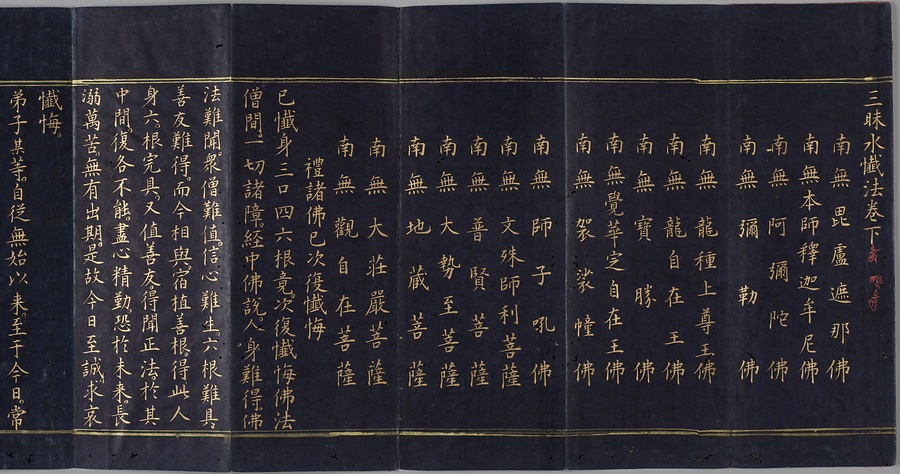 三昧水懺法卷下
南無毘盧遮那佛
南無本師釋迦牟尼佛
南無阿彌陀佛
南無彌勒佛
南無龍種上尊王佛
南無龍自在王佛
南無寶勝佛
南無覺華定自在王佛
南無袈裟幢佛
南無師子吼佛
南無文殊師利菩薩
南無普賢菩薩
南無大勢至菩薩
南無地藏菩薩
南無大莊嚴菩薩
南無觀自在菩薩
禮諸佛已次復懺悔
已懺身三口四六根竟。次復懺悔佛法
僧間。一切諸障。經中佛說。人身難得。佛
法難聞。衆僧難值。信心難生。六根難具。
善友難得。而今相與。宿植善根。得此人
身。六根完具。又值善友。得聞正法。於其
中間。復各不能盡心精勤。恐於未來。長
溺萬苦。無有出期。是故今日至誠。求哀
懺悔。
弟子某等。自從無始以来。至于今日。常